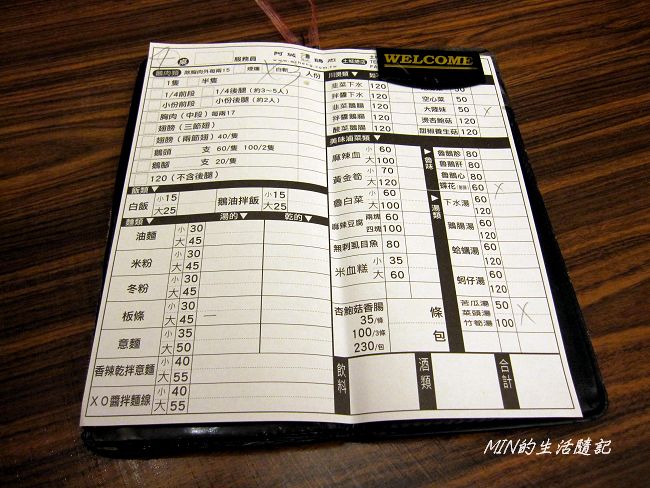 桌
服務員
阿城鵝肉店
土城總店
WELCOME
鵝肉類
煙燻
白斬
人份
1隻 半隻
1/4前段 1/4後腿 (約3~5人)
小份前段 小份後腿 (約2人)
胸肉 (中段) 每兩17
翅膀 (三節翅)
翅膀 (兩節翅) 40/隻
鵝頭 支 60/隻 100/2隻
鵝腳 支 20/隻
120 (不含後腿)
飯類▼
白飯 小15 大25
鵝油拌飯 小15 大25
麵類▼ 湯的▼ 乾的▼
油麵 小30 大45
米粉 小30 大45
冬粉 小30 大45
板條 小30 大45
意麵 小35 大50
香辣乾拌意麵 小40 大55
XO醬拌麵線 小40 大55
川燙類▼
韭菜下水 120
拌鹽下水 120
韭菜鵝腸 120
拌鹽鵝腸 120
酸菜鵝腸 120
空心菜 50
大陸妹 50
燙杏鮑菇 60
胡椒養生菇 120
美味滷菜類▼
麻辣血 小60 大100
黃金筍 小70 大100
魯白菜 小60 大100
麻辣豆腐 兩塊60 四塊100
無刺虱目魚 80
米血糕 小35 大60
杏鮑菇香腸
35/條
100/3條
230/包
條
包
▶魯味
魯鵝胗 80
魯鵝肝 80
魯鵝心 80
60
▶湯類
下水湯 60 120
鵝腸湯 60 120
蛤蠣湯 60 120
蚵仔湯 60 120
苦瓜湯 50
菜頭湯
竹筍湯 100
飲料
酒類
合計
MIN的生活隨記